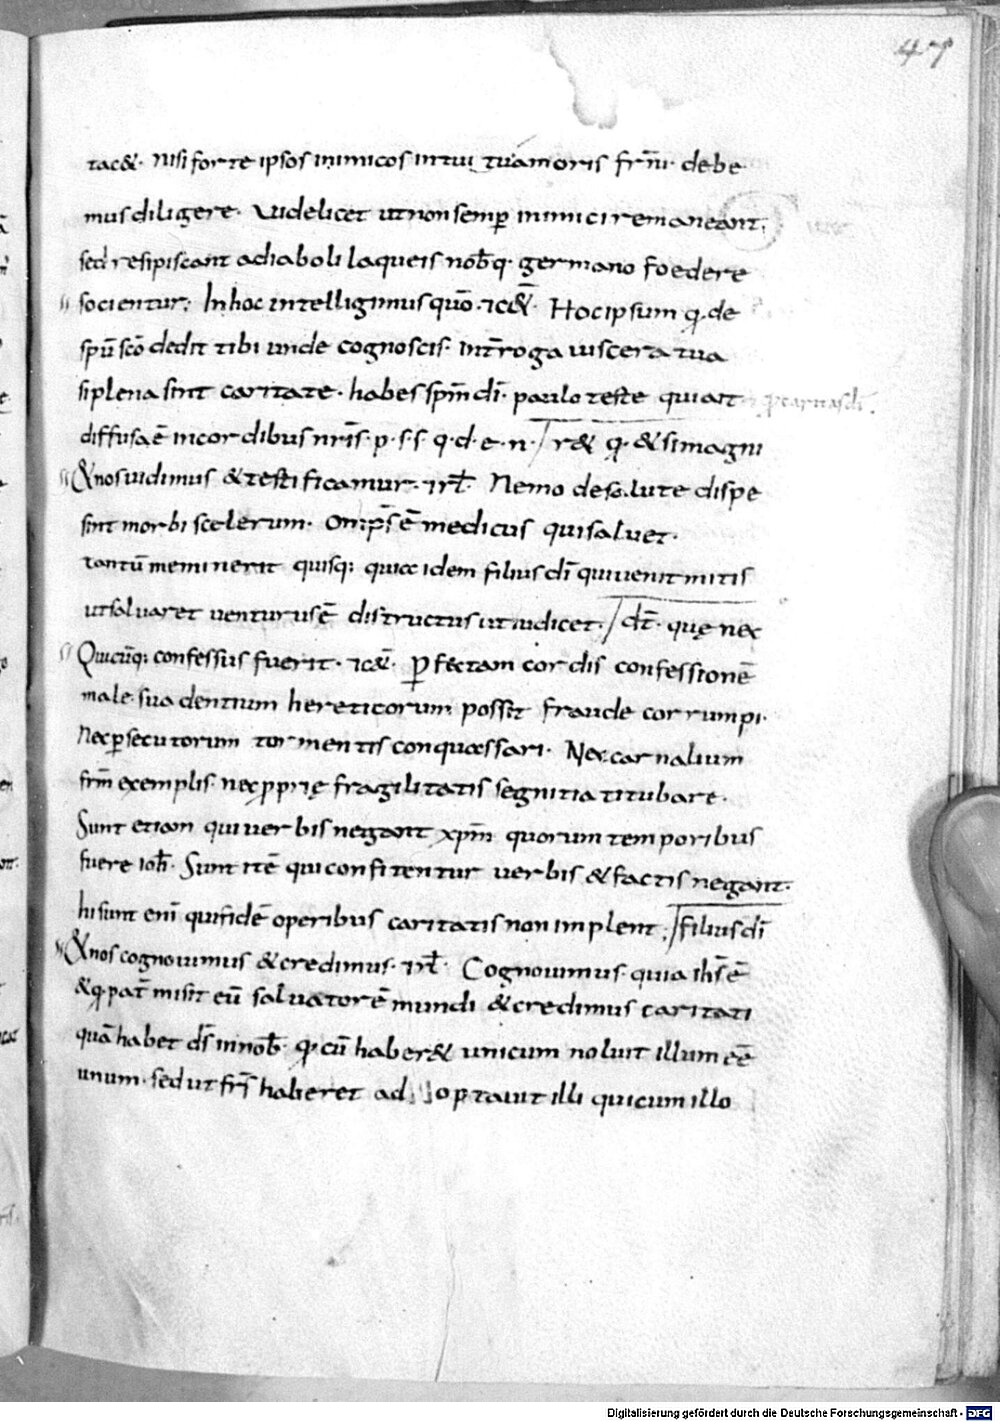 47
tac&. Nisi forte ipsos inimicos intuitu amoris frn̄i. debe
mus diligere. Videlicet ut non semꝑ inimici remaneant.
sed resipiscant a diaboli laqueis nob̄q. germano foedere
socientur; In hoc intelligimus quō. &c&̄. Hoc ipsum q. de
spū scō dedit tibi unde cognoscis. Int̄roga uiscera tua
si plena sint caritate. habes spm̄ dī. paulo teste qui ait
q caritas dī.
diffusa ē in cordibus nrīs. p. s. s. q. d. e. n. r& q. & si magni
& nos uidimus & testificamur. & rł. Nemo de salute dispe
sint morbi scelerum. omp̄s ē medicus qui saluet.
tantū meminerit quisq; quia idem filius dī qui uenit mitis
ut saluaret uenturus ē districtus ut iudicet. dt̄. quę nex
Quicūq; confessus fuerit. &c&̄. ꝑfectam cordis confessionē
male suadentium hereticorum possit fraude corrumpi.
Nec ꝑsecutorum tormentis conquassari. Nec carnalium
frm̄ exemplis. nec ꝓprię fragilitatis segnitia titubare.
Sunt etiam qui uerbis negant xpm̄ quorum temporibus
fuere ioh̄. Sunt itē qui confitentur uerbis & factis negant.
hi sunt enī qui fidē operibus caritatis non implent. filius dī
& nos cognouimus & credimus. & rł. Cognouimus quia ihs̄ ē
& q. pat̄ misit eū saluatorē mundi & credimus caritati
quā habet ds̄ in nob̄. q. cū haber& unicum noluit illum eē
unum. sed ut frs̄ haberet ad optauit illi qui cum illo
Digitalisierung gefördert durch die Deutsche Forschungsgemeinschaft - DFG